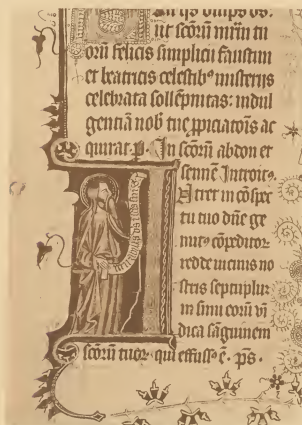 ut scōrum mr̄m tu
orū felicis simplicii faustini
et beatricis celestibꝰ misterijs
celebrata sollēpnitas: indul
gentiā nob̄ tue ꝓpiciatōis ac
quirat. p. In scōrū abdon et
sennē Introitꝰ.
Intret in cōspec
tu tuo dn̄e ge
mitꝰ cōpeditorū
redde uicinis no
stris septuplū
in sinu eorū vī
dica sāguinem
scōrū tuorū qui effusꝰ ē. p̄s.